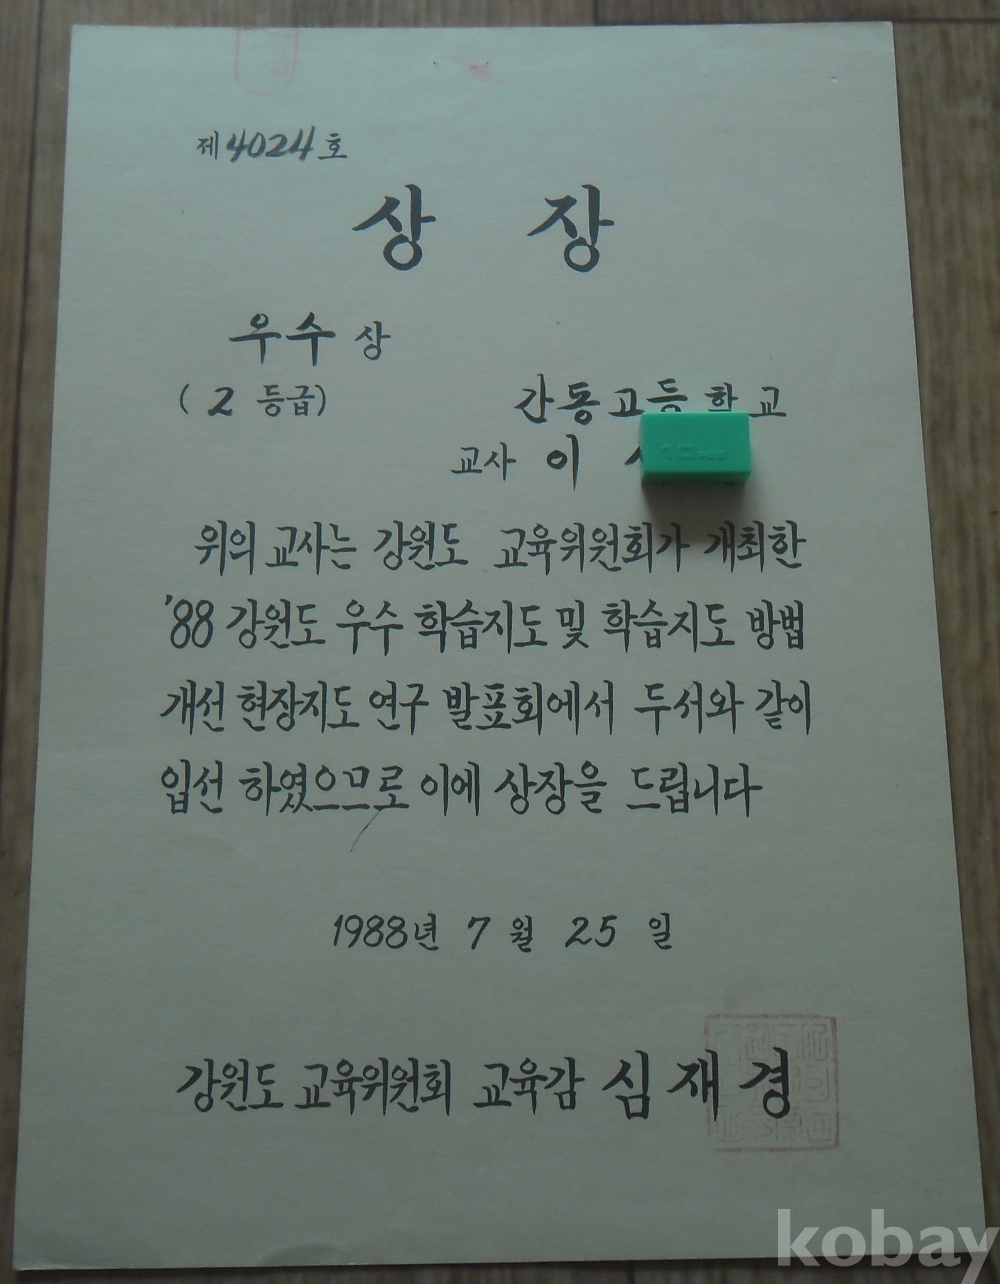 제4024호
상 장
우수상
(2 등급)
간동고등학교
교사 이
위의 교사는 강원도 교육위원회가 개최한
'88 강원도 우수 학습지도 및 학습지도 방법
개선 현장지도 연구 발표회에서 두서와 같이
입선 하였으므로 이에 상장을 드립니다
1988년 7월 25일
강원도 교육위원회 교육감 심재경
kobay